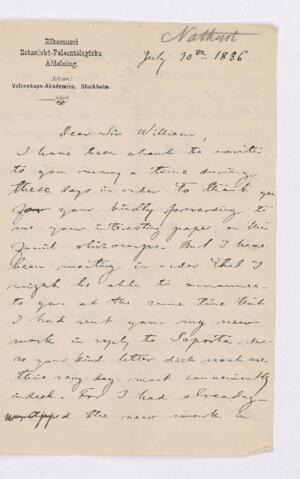 Nathorst
Riksmusei
Botaniskt-Paleontologiska
Afdelning.
Adress:
Vetenskaps-Akademien, Stockholm.
July 30th 1886
Dear Sir William,
I have been about to write
to you many a time during
these days in order to thank you
for your kindly forwarding to
me your interesting paper on the
fossil rhizocarps. But I have
been waiting in order that I
might be able to announce
to you at the same time that
I had sent you my new
work in reply to Saporta. And
so your kind letter did reach me
this very day most conveniently
indeed. For I had already
wrapped the new work in